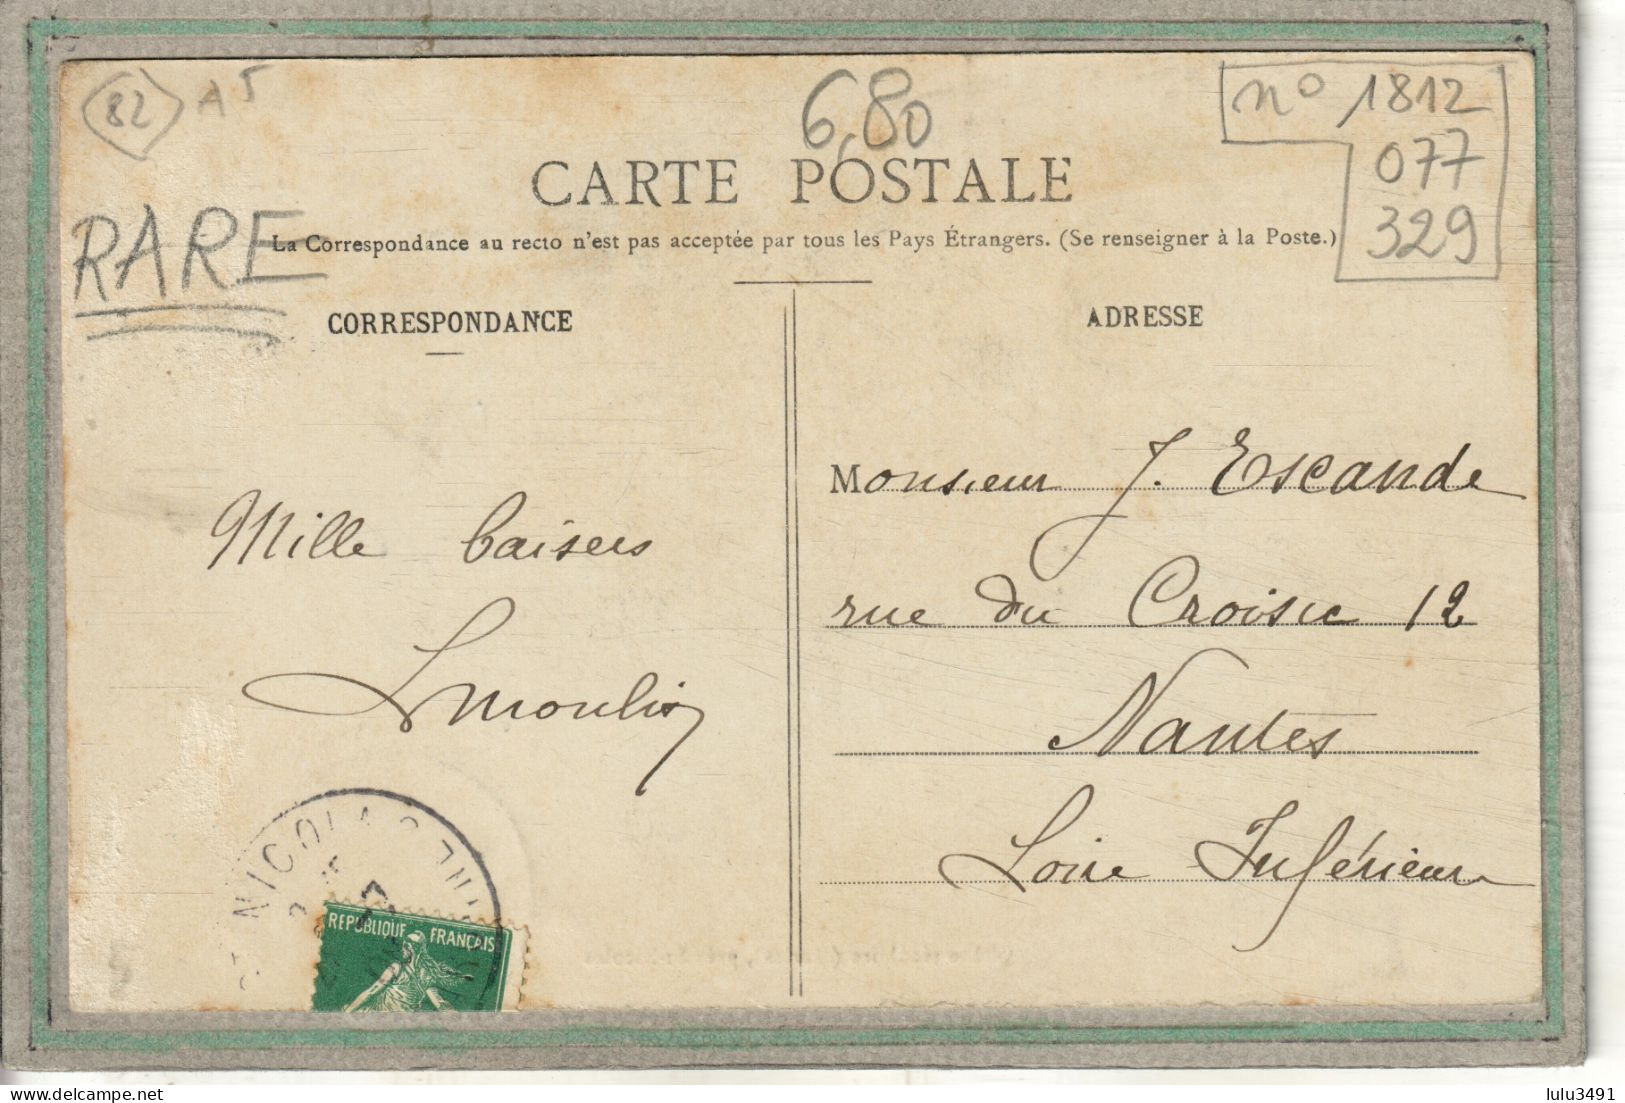 82
A5
6,80
n° 1812
077
329
RARE
CARTE POSTALE
La Correspondance au recto n'est pas acceptée par tous les Pays Étrangers. (Se renseigner à la Poste.)
CORRESPONDANCE
ADRESSE
Mille baisers
Lmoulin
Monsieur J. Escande
rue du Croisic 12
Nantes
Loire Inférieure
NICOLAS
REPUBLIQUE FRANÇAIS
lulu3491